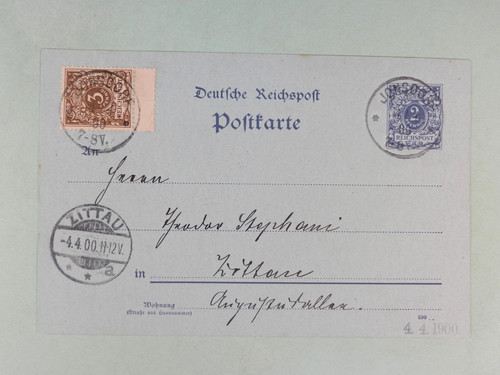 JONSDORF
3
PFENNIG
REICHSPOST
00
7-8V.
Deutsche Reichspost
Postkarte
JONSDORF
2
REICHSPOST
An
Herrn
Theodor Stephani
in Zittau
ZITTAU
-4.4.00.11-12V.
* * a
Wohnung
(Straße und Hausnummer)
4. 4. 1900.